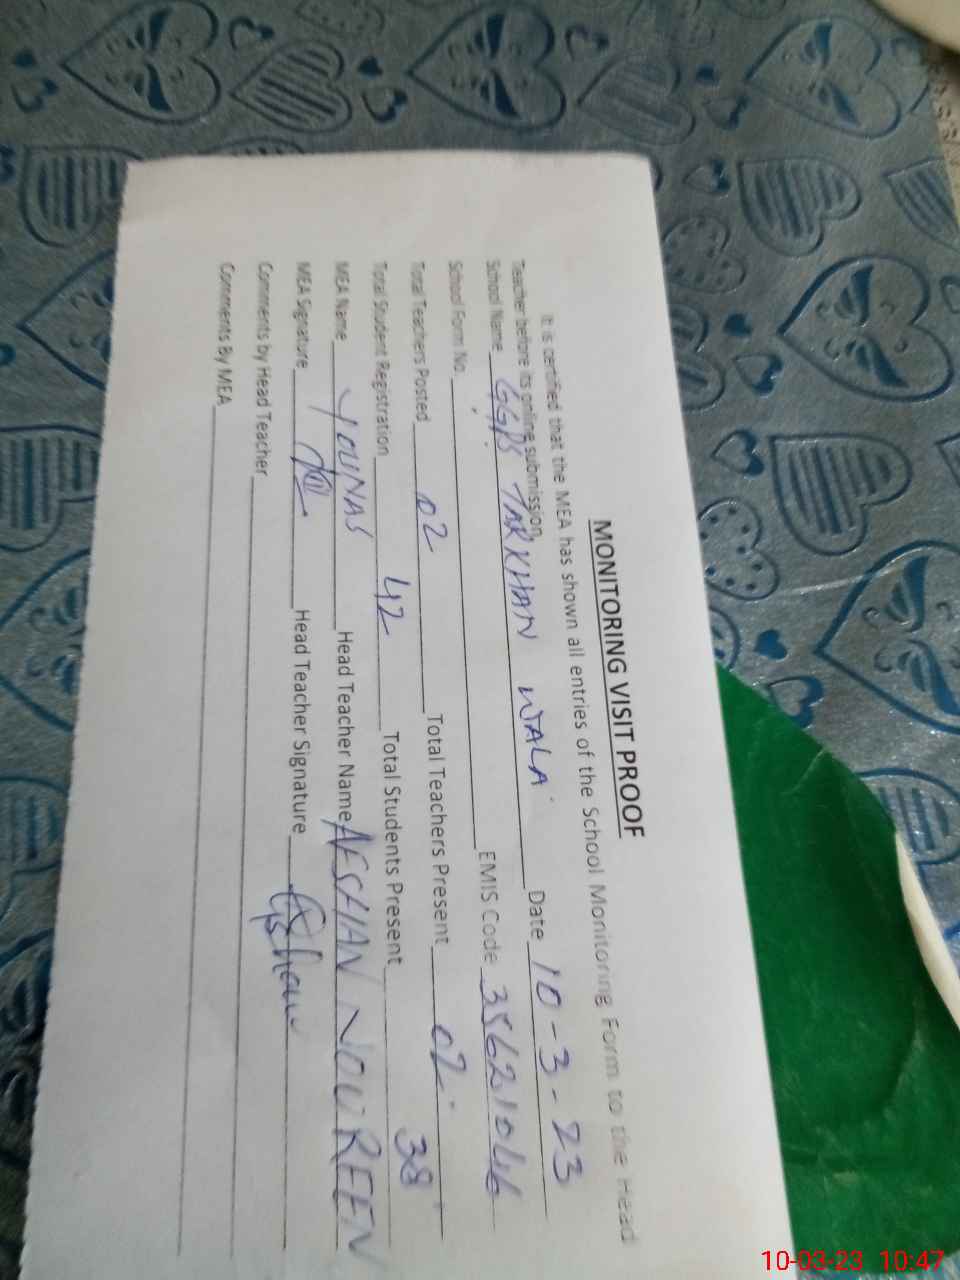 MONITORING VISIT PROOF
It is certified that the MEA has shown all entries of the School Monitoring Form to the Head
Teacher before its online submission.
School Name GGPS TARKHAN WALA Date 10-3-23
School Form No. EMIS Code 35621046
Total Teachers Posted 02 Total Teachers Present 02
Total Student Registration 42 Total Students Present 38
MEA Name YOUNAS Head Teacher Name AFSHAN NOUREEN
MEA Signature Head Teacher Signature Afshan
Comments by Head Teacher
Comments By MEA
10-03-23 10:47